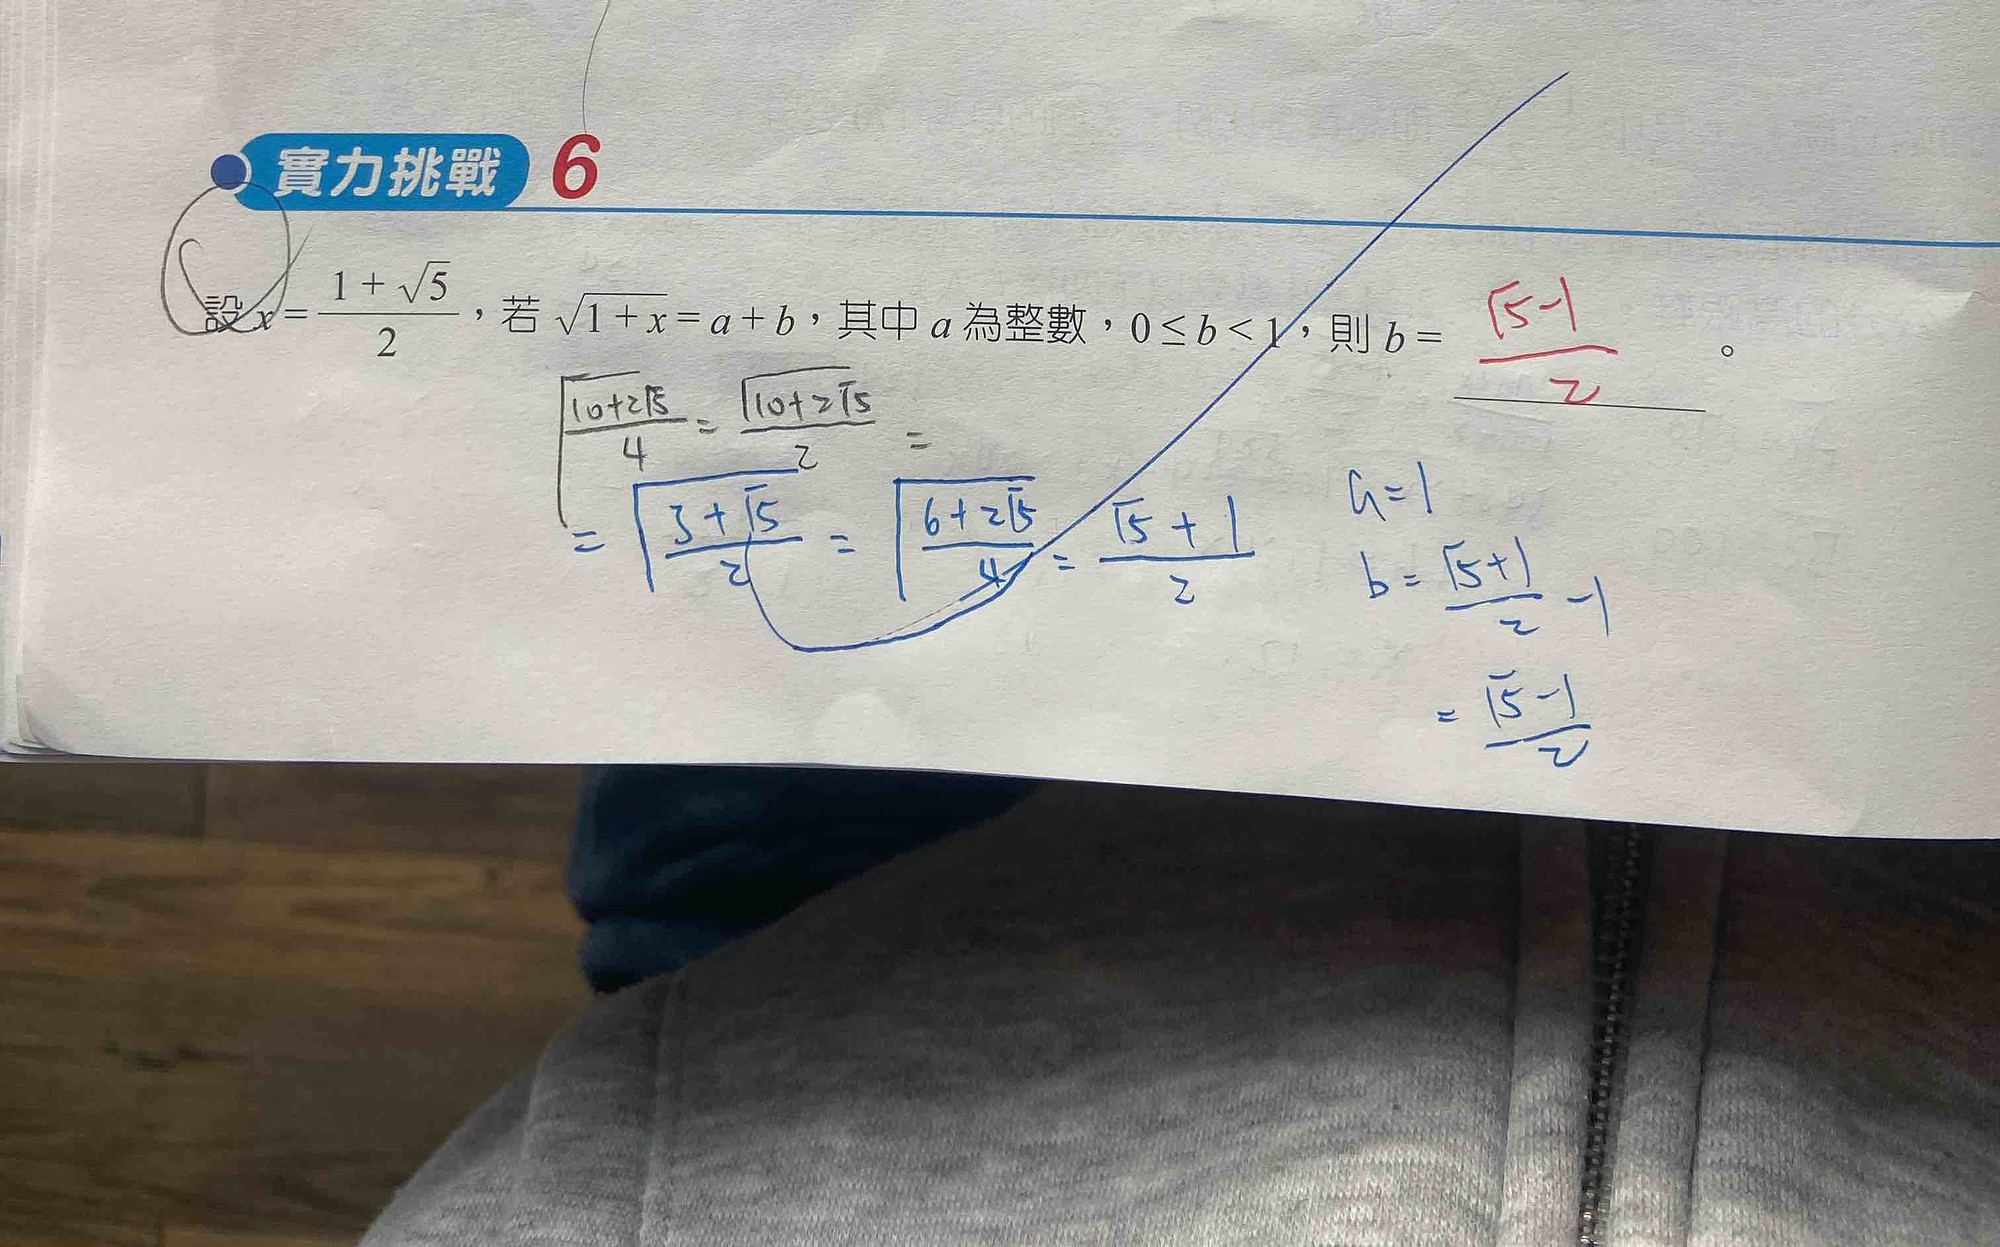 實力挑戰 6
設 x = (1 + √5)/2，若 √(1 + x) = a + b，其中 a 為整數，0 ≤ b < 1，則 b = (√5 - 1)/2 。
√((10+2√5)/4) = √(10+2√5)/2 =
= √((3+√5)/2) = √((6+2√5)/4) = (√5+1)/2
a=1
b = (√5+1)/2 - 1
= (√5-1)/2